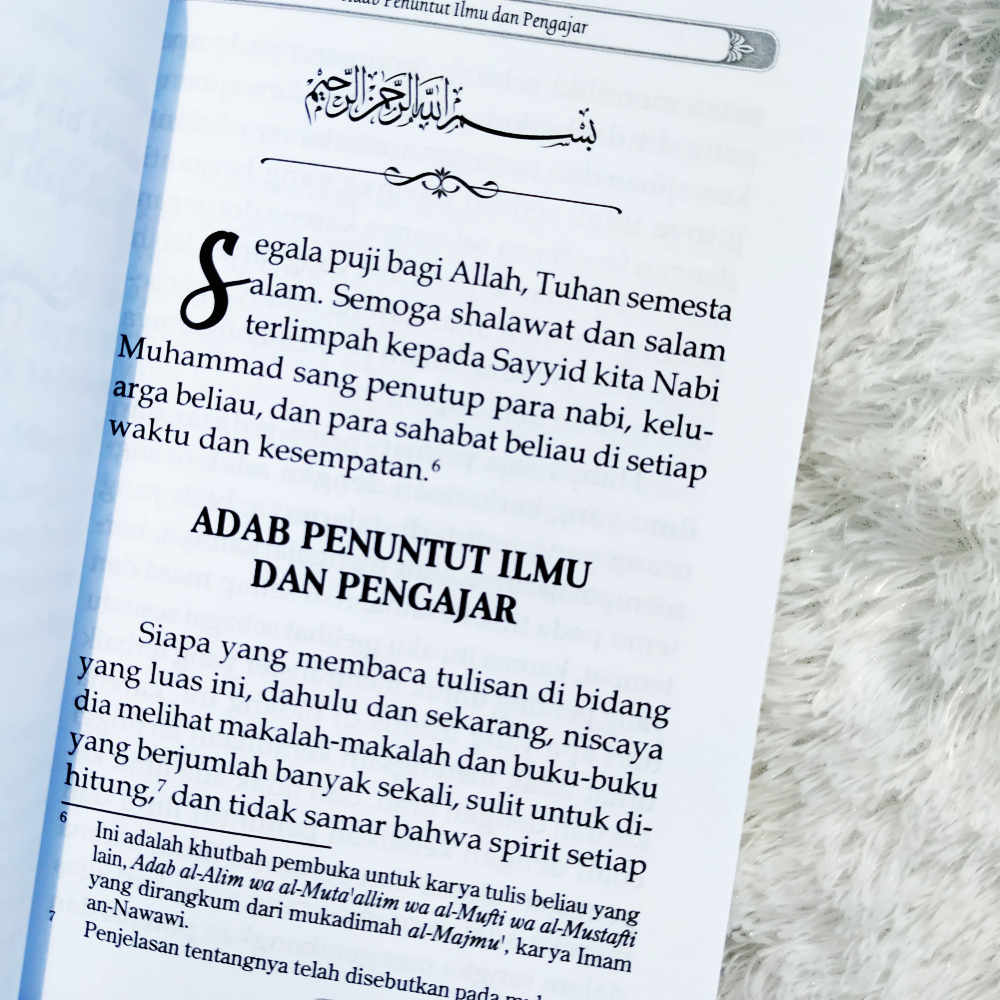 Adab Penuntut Ilmu dan Pengajar
بسم الله الرحمن الرحيم
Segala puji bagi Allah, Tuhan semesta
alam. Semoga shalawat dan salam
terlimpah kepada Sayyid kita Nabi
Muhammad sang penutup para nabi, kelu-
arga beliau, dan para sahabat beliau di setiap
waktu dan kesempatan.⁶
ADAB PENUNTUT ILMU
DAN PENGAJAR
Siapa yang membaca tulisan di bidang
yang luas ini, dahulu dan sekarang, niscaya
dia melihat makalah-makalah dan buku-buku
yang berjumlah banyak sekali, sulit untuk di-
hitung,⁷ dan tidak samar bahwa spirit setiap
6 Ini adalah khutbah pembuka untuk karya tulis beliau yang
lain, Adab al-Alim wa al-Muta'allim wa al-Mufti wa al-Mustafti
yang dirangkum dari mukadimah al-Majmu', karya Imam
an-Nawawi.
7 Penjelasan tentangnya telah disebutkan pada